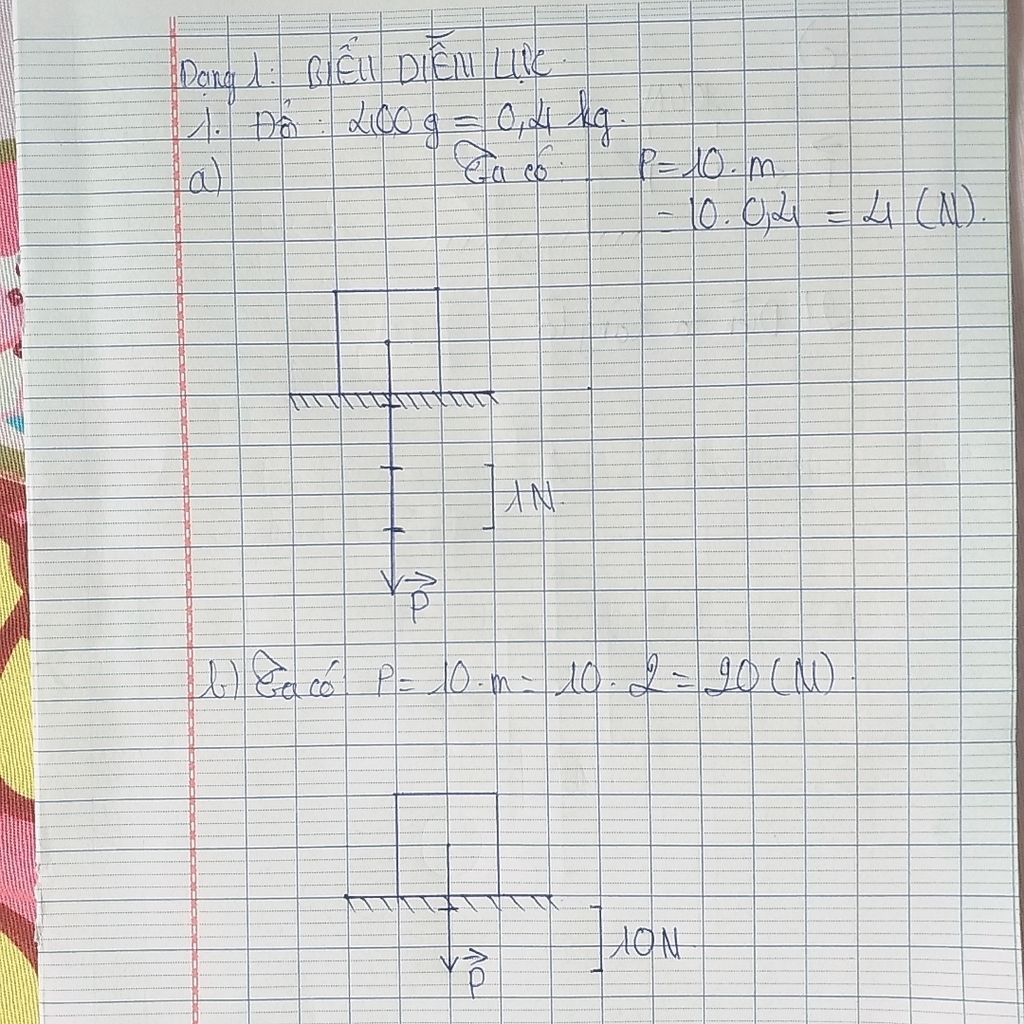 Dạng 1: BIỂU DIỄN LỰC.
1. Đổi: 400g = 0,4 kg.
a) Ta có: P = 10.m
= 10. 0,4 = 4 (N).
1N.
P
b) Ta có P = 10.m = 10. 2 = 20 (N).
10N
P